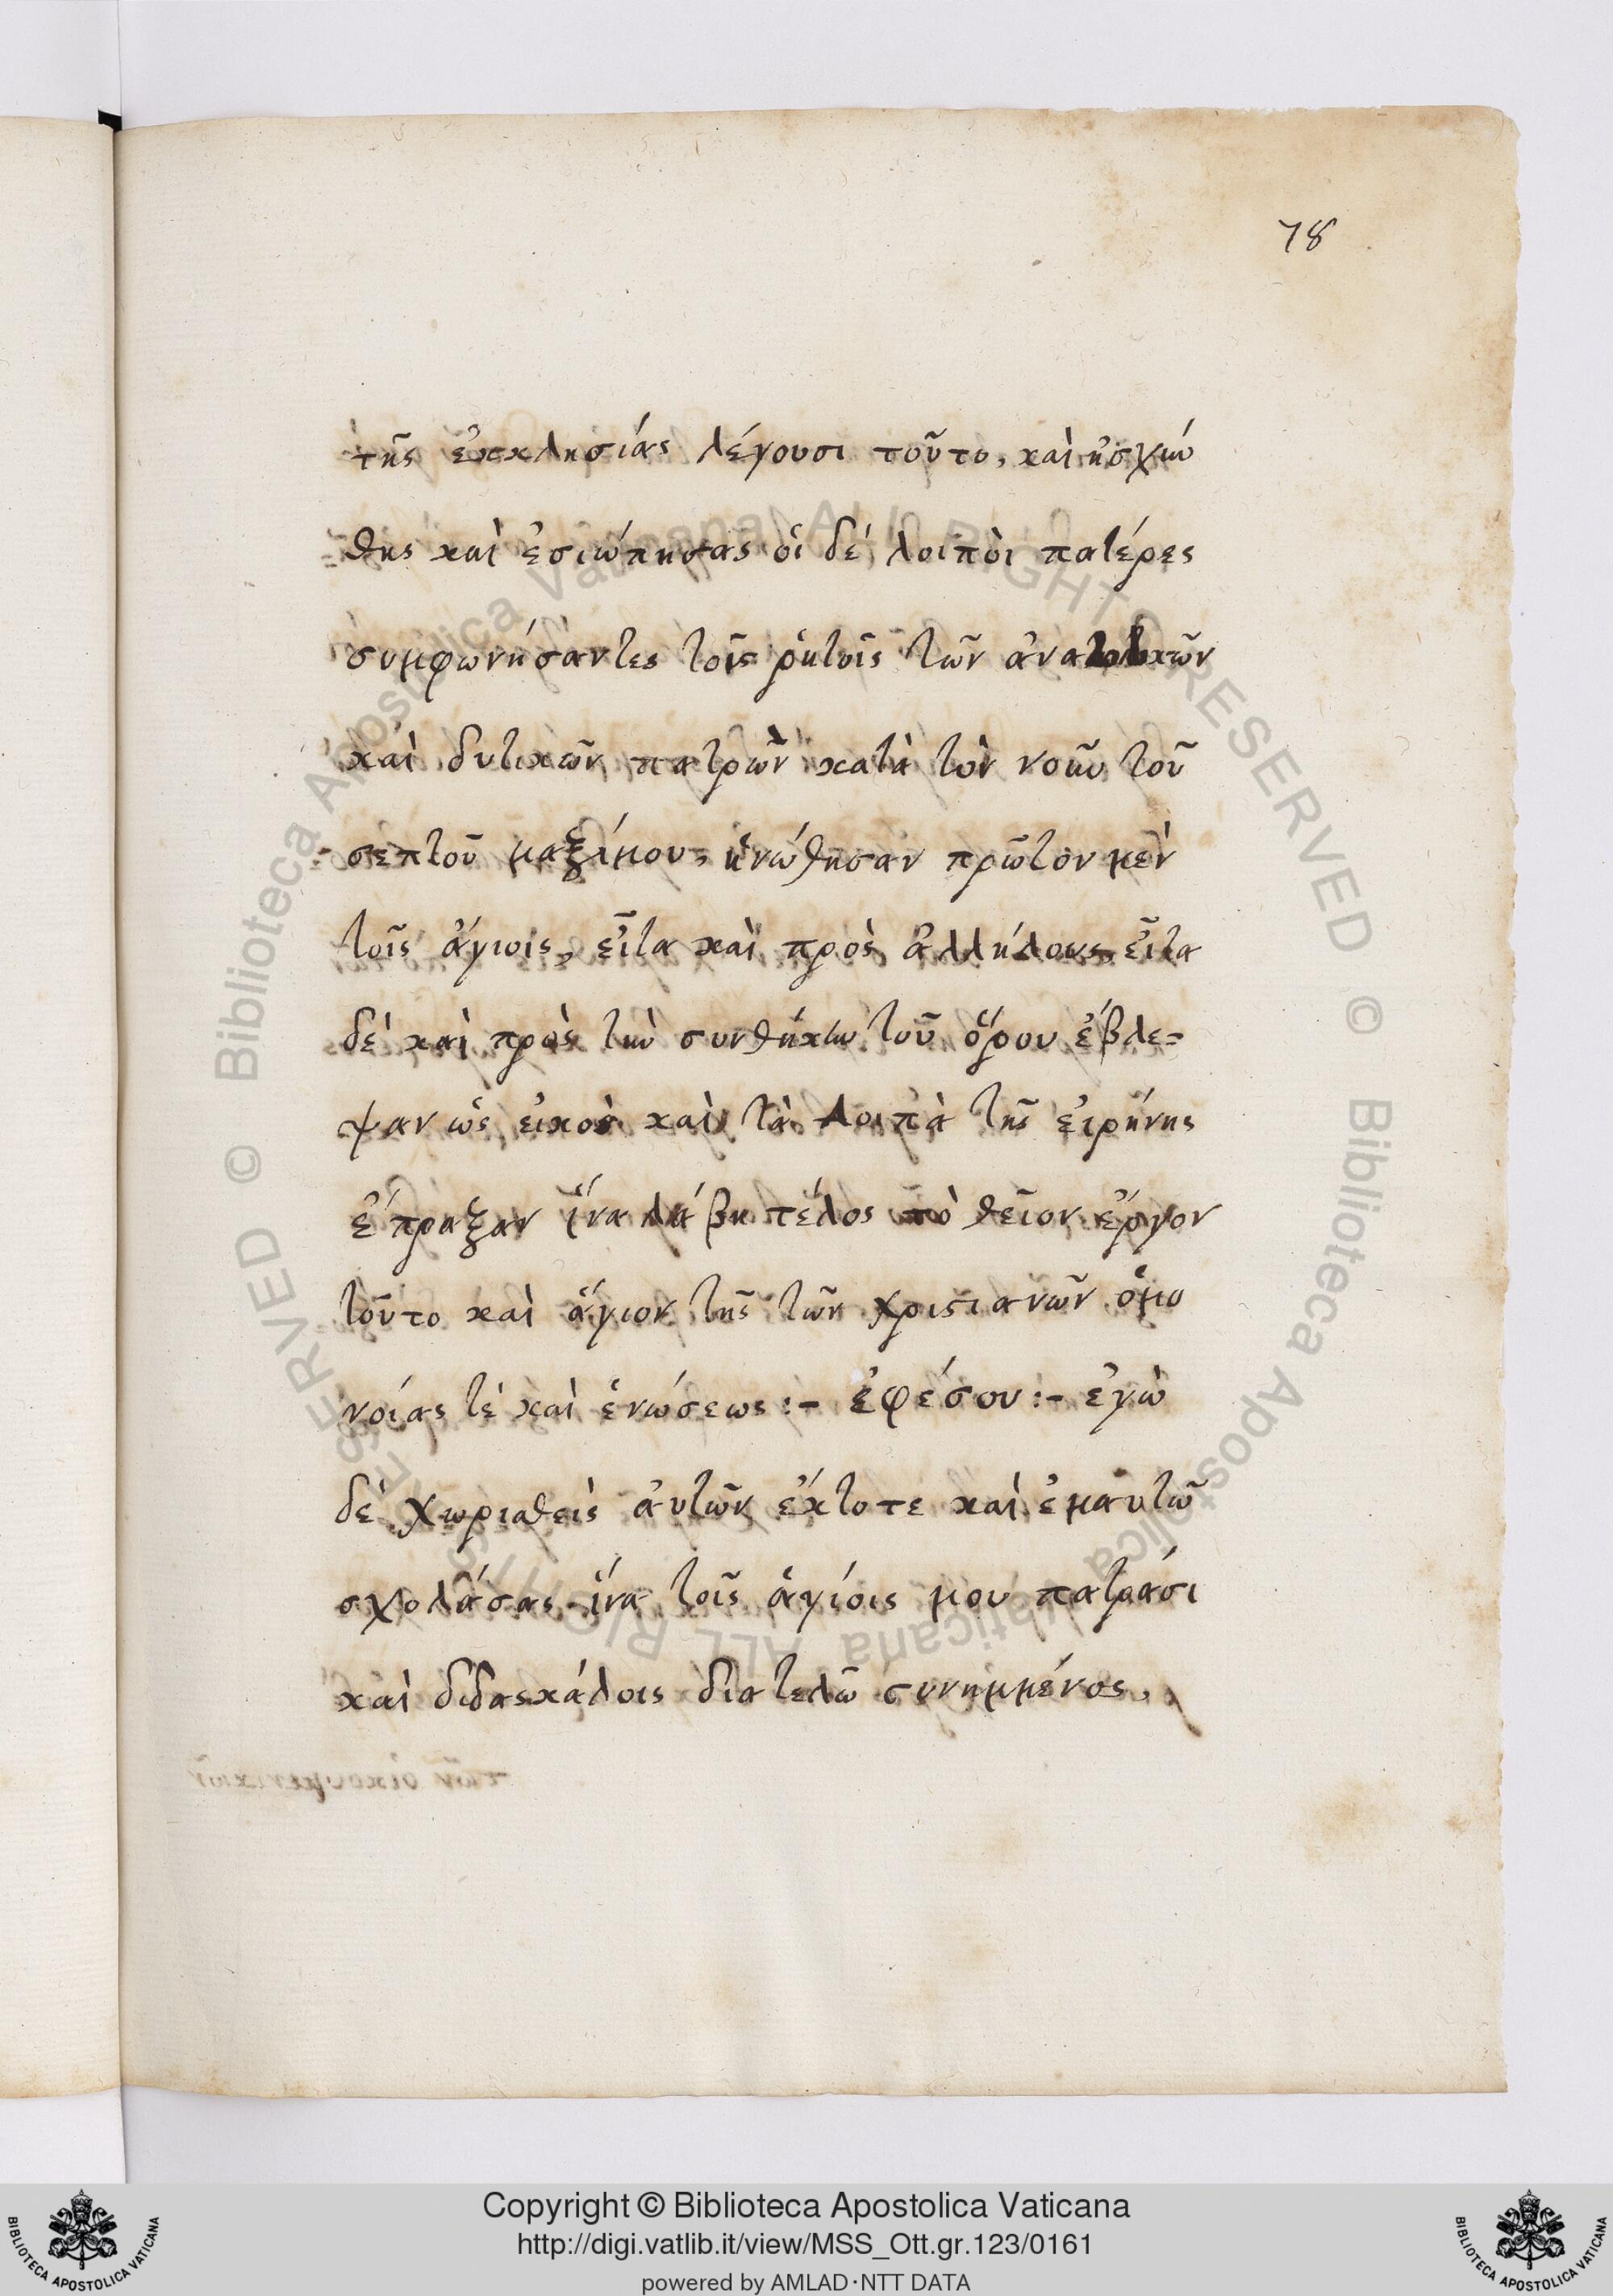 78
τῆς ἐκκλησίας λέγουσι τοῦτο, καὶ ἠσχύν
θης καὶ ἐσιώπησας οἱ δέ λοιπὸι πατέρες
συμφωνήσαντες τοῖς ῥητοῖς τῶν ἀνατολικῶν
καὶ δυτικῶν πατρῶν κατὰ τὸν νοῦν τοῦ
σεπτοῦ μαξίμου, ἡνώθησαν πρῶτον μὲν
τοῖς ἁγίοις, εἶτα καὶ πρὸς ἀλλήλους, εἶτα
δὲ καὶ πρὸς τὴν συνθήκην τοῦ ὅρου ἔβλε=
ψαν ὡς εἰκὸς καὶ τὰ λοιπὰ τῆς εἰρήνης
ἔπραξαν ἵνα λάβη τέλος τὸ θεῖον ἔργον
τοῦτο καὶ ἅγιον τῆς τῶν χριστιανῶν ὁμο
νοίας τὲ καὶ ἑνώσεως :- ἐφέσου :- ἐγὼ
δὲ χωρισθεὶς ἀυτῶν ἔκτοτε καὶ ἐμαυτῶ
σχολάσας ἵνα τοῖς ἁγίοις μου πατράσι
καὶ διδασκάλοις διατελῶ συνημμένος,
Copyright © Biblioteca Apostolica Vaticana
http://digi.vatlib.it/view/MSS_Ott.gr.123/0161
powered by AMLAD·NTT DATA
BIBLIOTECA APOSTOLICA VATICANA
BIBLIOTECA APOSTOLICA VATICANA
© Biblioteca Apostolica Vaticana ALL RIGHTS RESERVED © Biblioteca Apostolica Vaticana ALL RIGHTS RESERVED